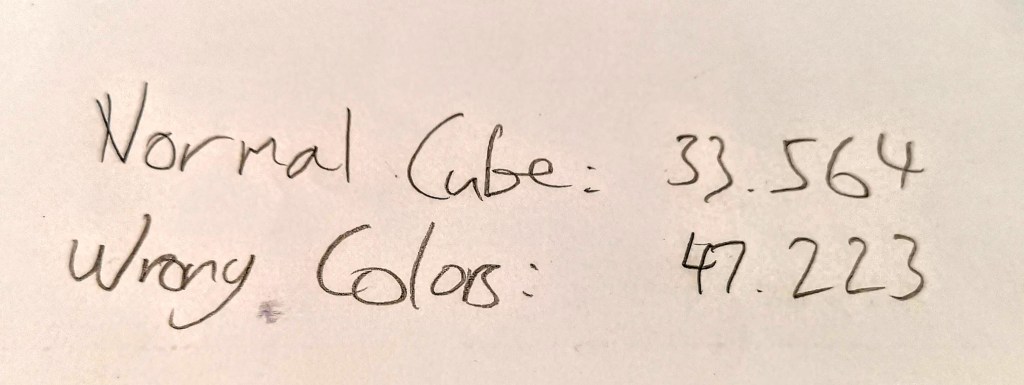 Normal Cube: 33.564
Wrong Colors: 47.223